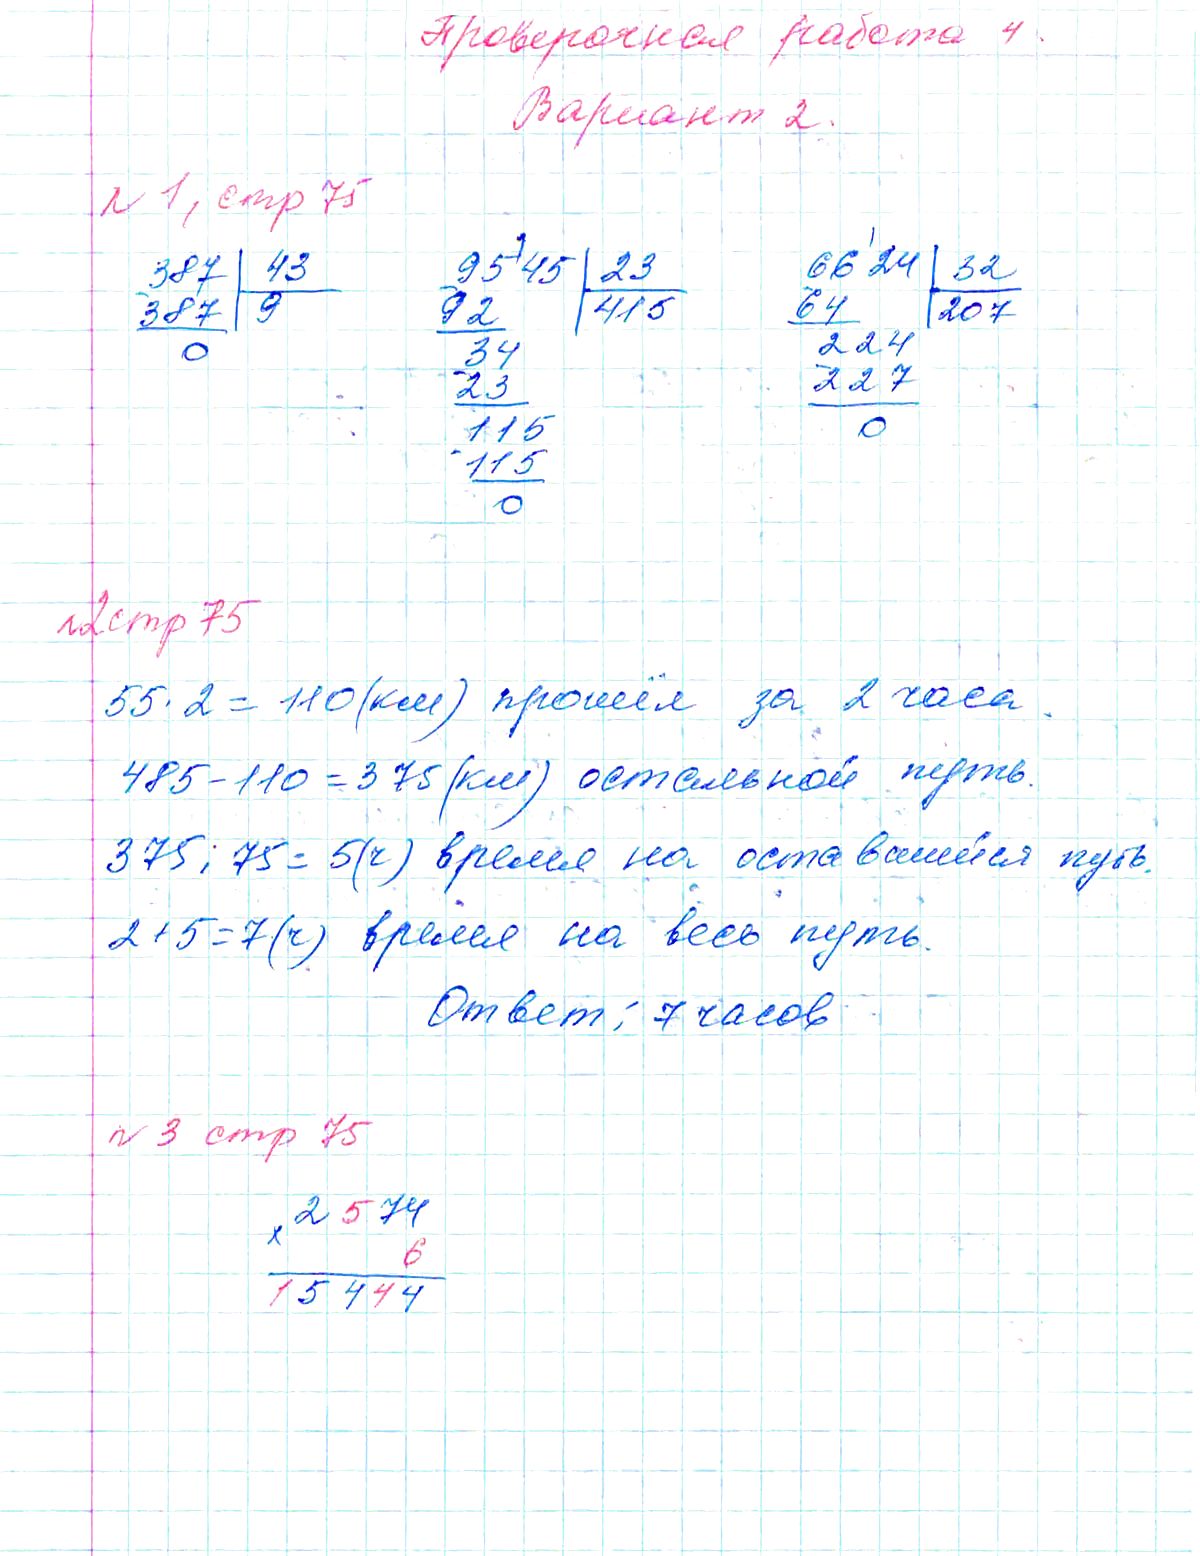 Проверочная работа 4.
Вариант 2.
№ 1, стр 75
387 | 43
387 | 9
0
9545 | 23
92 | 415
34
23
115
115
0
6624 | 32
64 | 207
224
227
0
№2 стр 75
55 · 2 = 110 (км) прошёл за 2 часа.
485 - 110 = 375 (км) остальной путь.
375 : 75 = 5 (ч) время на оставшийся путь.
2 + 5 = 7 (ч) время на весь путь.
Ответ: 7 часов
№ 3 стр 75
× 2574
6
15444